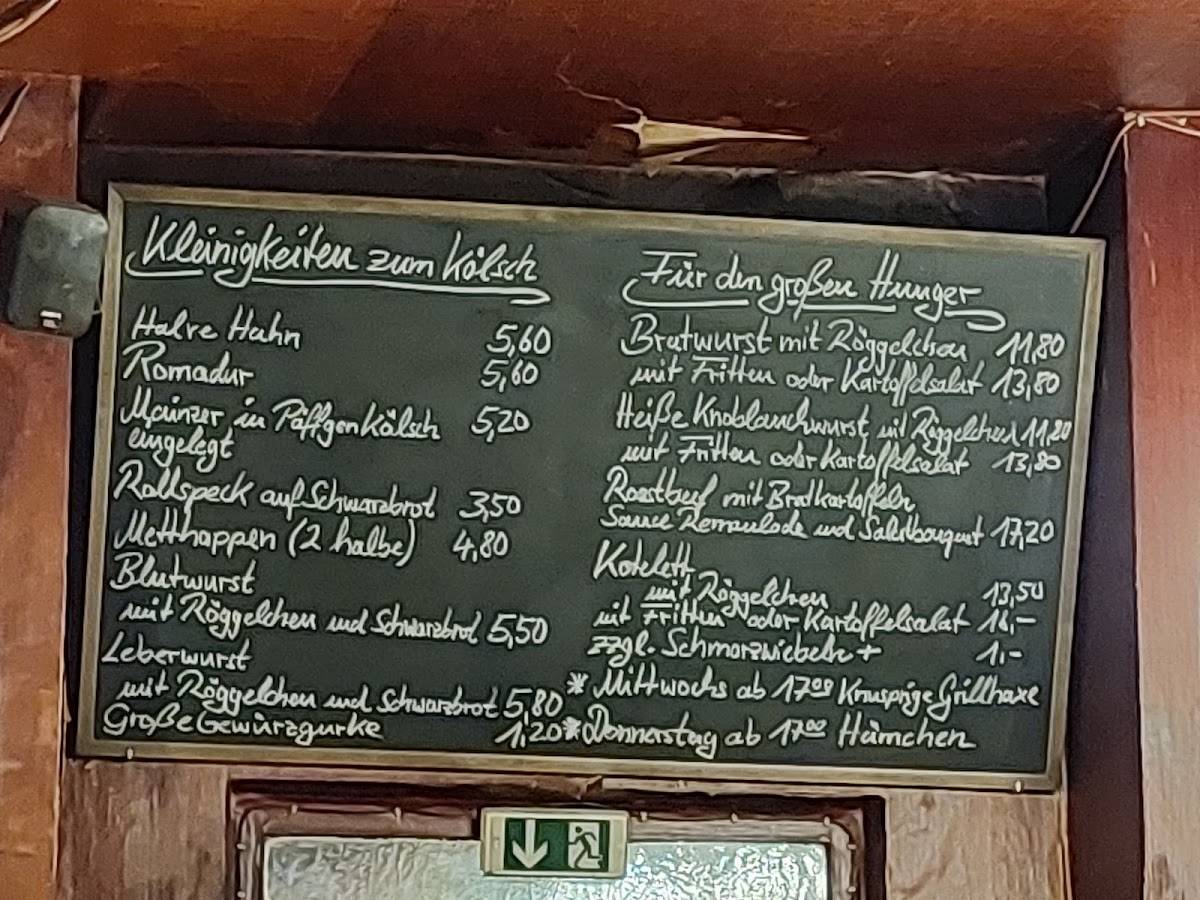 Kleinigkeiten zum Kölsch
Halve Hahn 5,60
Romadur 5,60
Mainzer in Päffgen Kölsch 5,20
eingelegt
Rollspeck auf Schwarzbrot 3,50
Metthappen (2 halbe) 4,80
Blutwurst
mit Röggelchen und Schwarzbrot 5,50
Leberwurst
mit Röggelchen und Schwarzbrot 5,80
Große Gewürzgurke 1,20
Für den großen Hunger
Bratwurst mit Röggelchen 11,80
mit Fritten oder Kartoffelsalat 13,80
Heiße Knoblauchwurst mit Röggelchen 11,80
mit Fritten oder Kartoffelsalat 13,80
Roastbeef mit Bratkartoffeln
Sauce Remoulade und Salatbouquet 17,20
Kotelett
mit Röggelchen 13,50
mit Fritten oder Kartoffelsalat
zzgl. Schmorzwiebeln + 1,-
* Mittwochs ab 17⁰⁰ Knusprige Grillhaxe
* Donnerstag ab 17⁰⁰ Hämchen